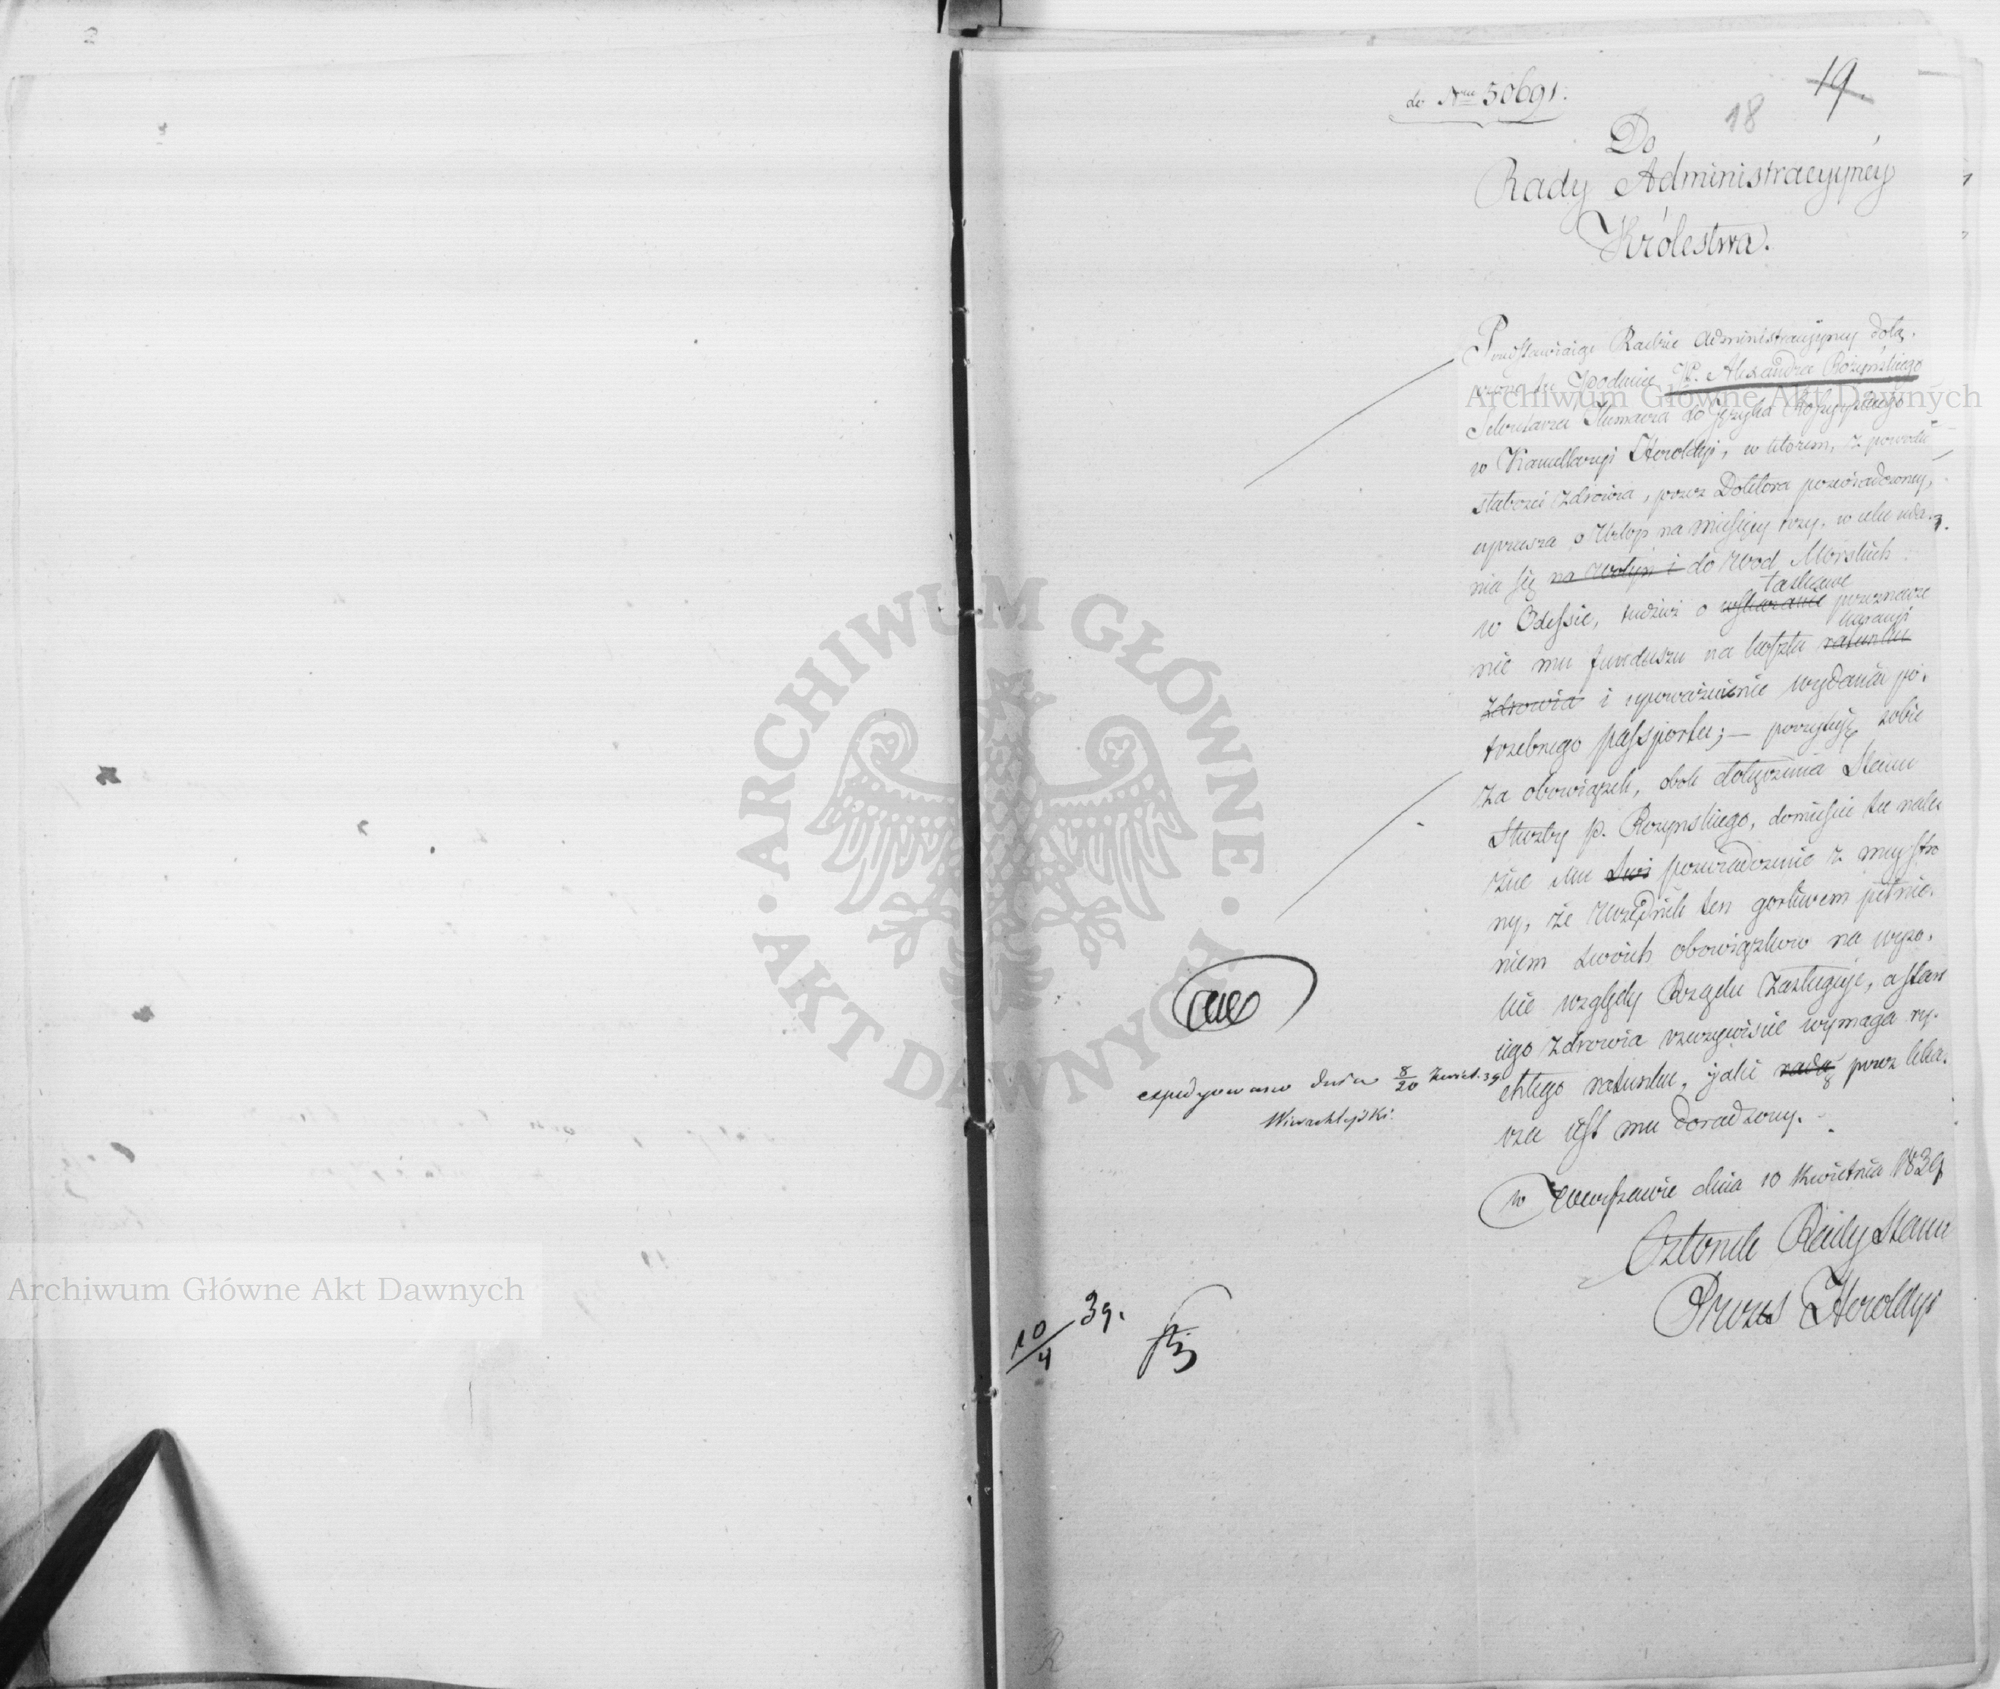 19.
18
do Nru 50691.
Do
Rady Administracyjnéy
Królestwa.
Przedstawiaiąc Radzie Administracyjney dołą-
czone tu podanie W. Alexandra Różyńskiego
Sekretarza Tłumacza do Języka Rossyyskiego
w Kancellaryi Heroldyi, w którem, z powodu
słabości zdrowia, przez Doktora poświadczoney,
uprasza o Urlop na miesięcy trzy, w celu uda-
nia się na Wołyń i do Wod Morskich
łaskawe
w Odessie, tudzież o przezna-
kuracyi
nie mu funduszu na koszta ratunku
zdrowia i upoważnienie wydania po-
trzebnego passportu; — poczytuję sobie
za obowiązek, obok dołączenia Stanu
Służby p. Rozynskiego, donieść tu nale-
żne Mu poświadczenie z mey stro
ny, że Urzędnik ten gorliwem pełnie-
niem swoich obowiązków na wyso-
kie względy Rządu zasługuje, a stan
iego zdrowia rzeczywiście wymaga ry-
chłego ratunku, jaki przez leka-
rza iest mu doradzony.
w Warszawie dnia 10 Kwietnia 1839
Członek Rady Stanu
Prezes Heroldyi
expedyowano dnia 8/20 Kwiet. 39
10/4 39.
Archiwum Główne Akt Dawnych
Archiwum Główne Akt Dawnych
ARCHIWUM GŁÓWNE • AKT DAWNYCH •